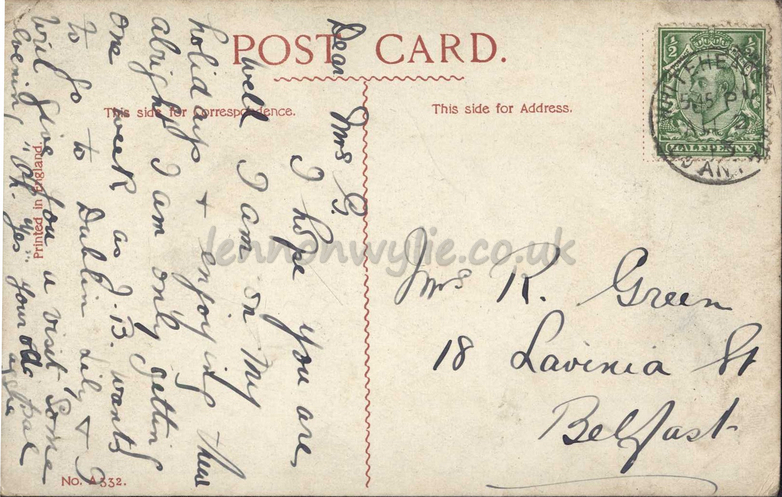 POST CARD.
This side for Correspondence.
This side for Address.
Printed in England.
No. A332.
½ ½
HALFPENNY
WHITEHEAD
5 45 P
CO ANT
Dear Mrs G.
I hope you are,
well I am on my
holidays + enjoying them
alright I am only getting
one week as J.B. wants
to go to Dublin Lily & I
will give you a visit some
evening "Oh. Yes" your old pal
Mrs R. Green
18 Lavinia St
Belfast
lennonwylie.co.uk